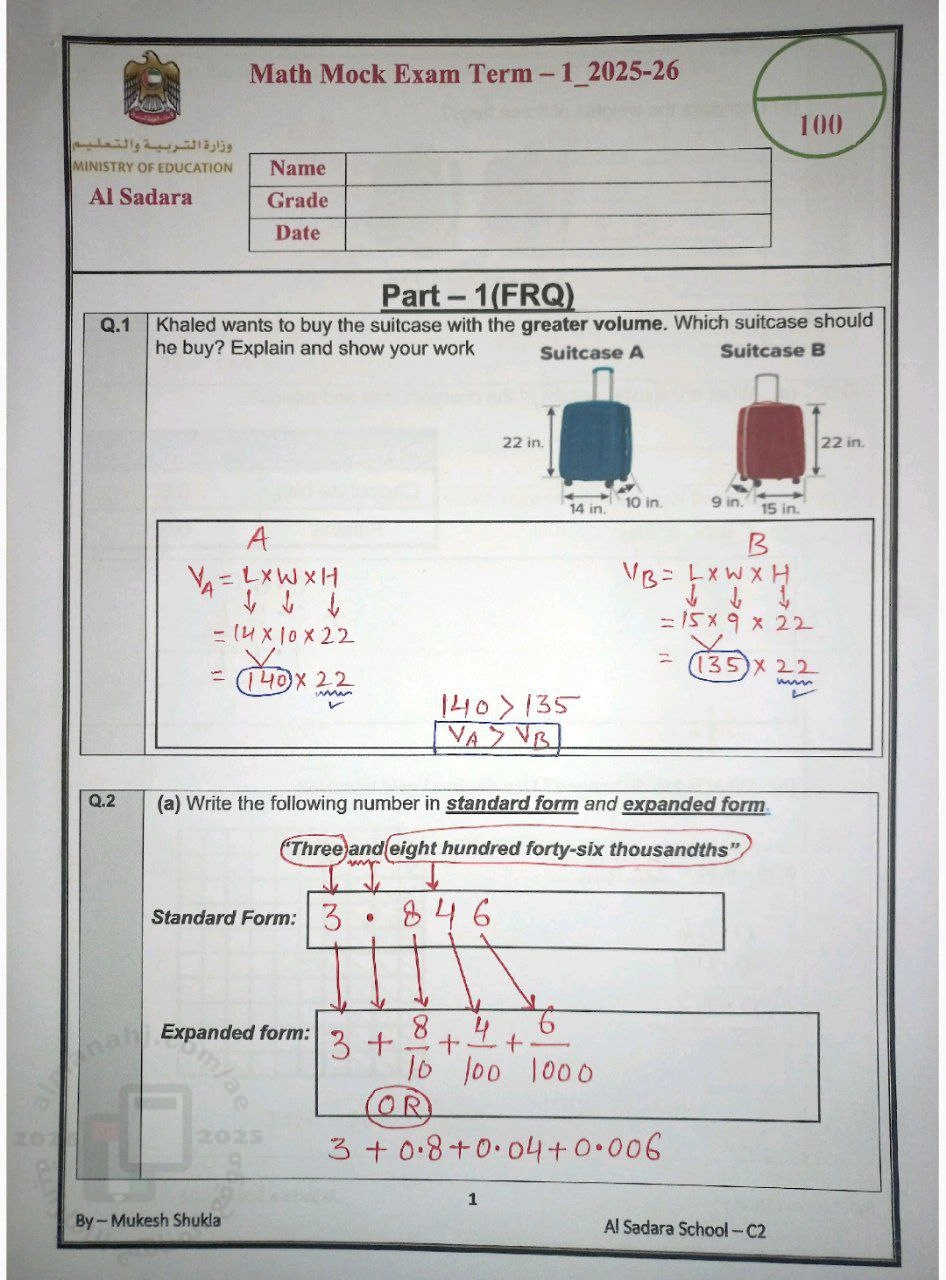 Math Mock Exam Term – 1_2025-26
100
وزارة التربية والتعليم
MINISTRY OF EDUCATION
Al Sadara
Name
Grade
Date
Part – 1(FRQ)
Q.1 Khaled wants to buy the suitcase with the greater volume. Which suitcase should
he buy? Explain and show your work
Suitcase A Suitcase B
22 in. 22 in.
14 in. 10 in. 9 in. 15 in.
A B
VA = L×W×H VB = L×W×H
= 14×10×22 = 15×9×22
= 140×22 = 135×22
140 > 135
VA > VB
Q.2 (a) Write the following number in standard form and expanded form.
"Three and eight hundred forty-six thousandths"
Standard Form: 3.846
Expanded form: 3 + 8/10 + 4/100 + 6/1000
OR
3 + 0.8 + 0.04 + 0.006
almanahj.com/ae
2025
1
By – Mukesh Shukla
Al Sadara School – C2